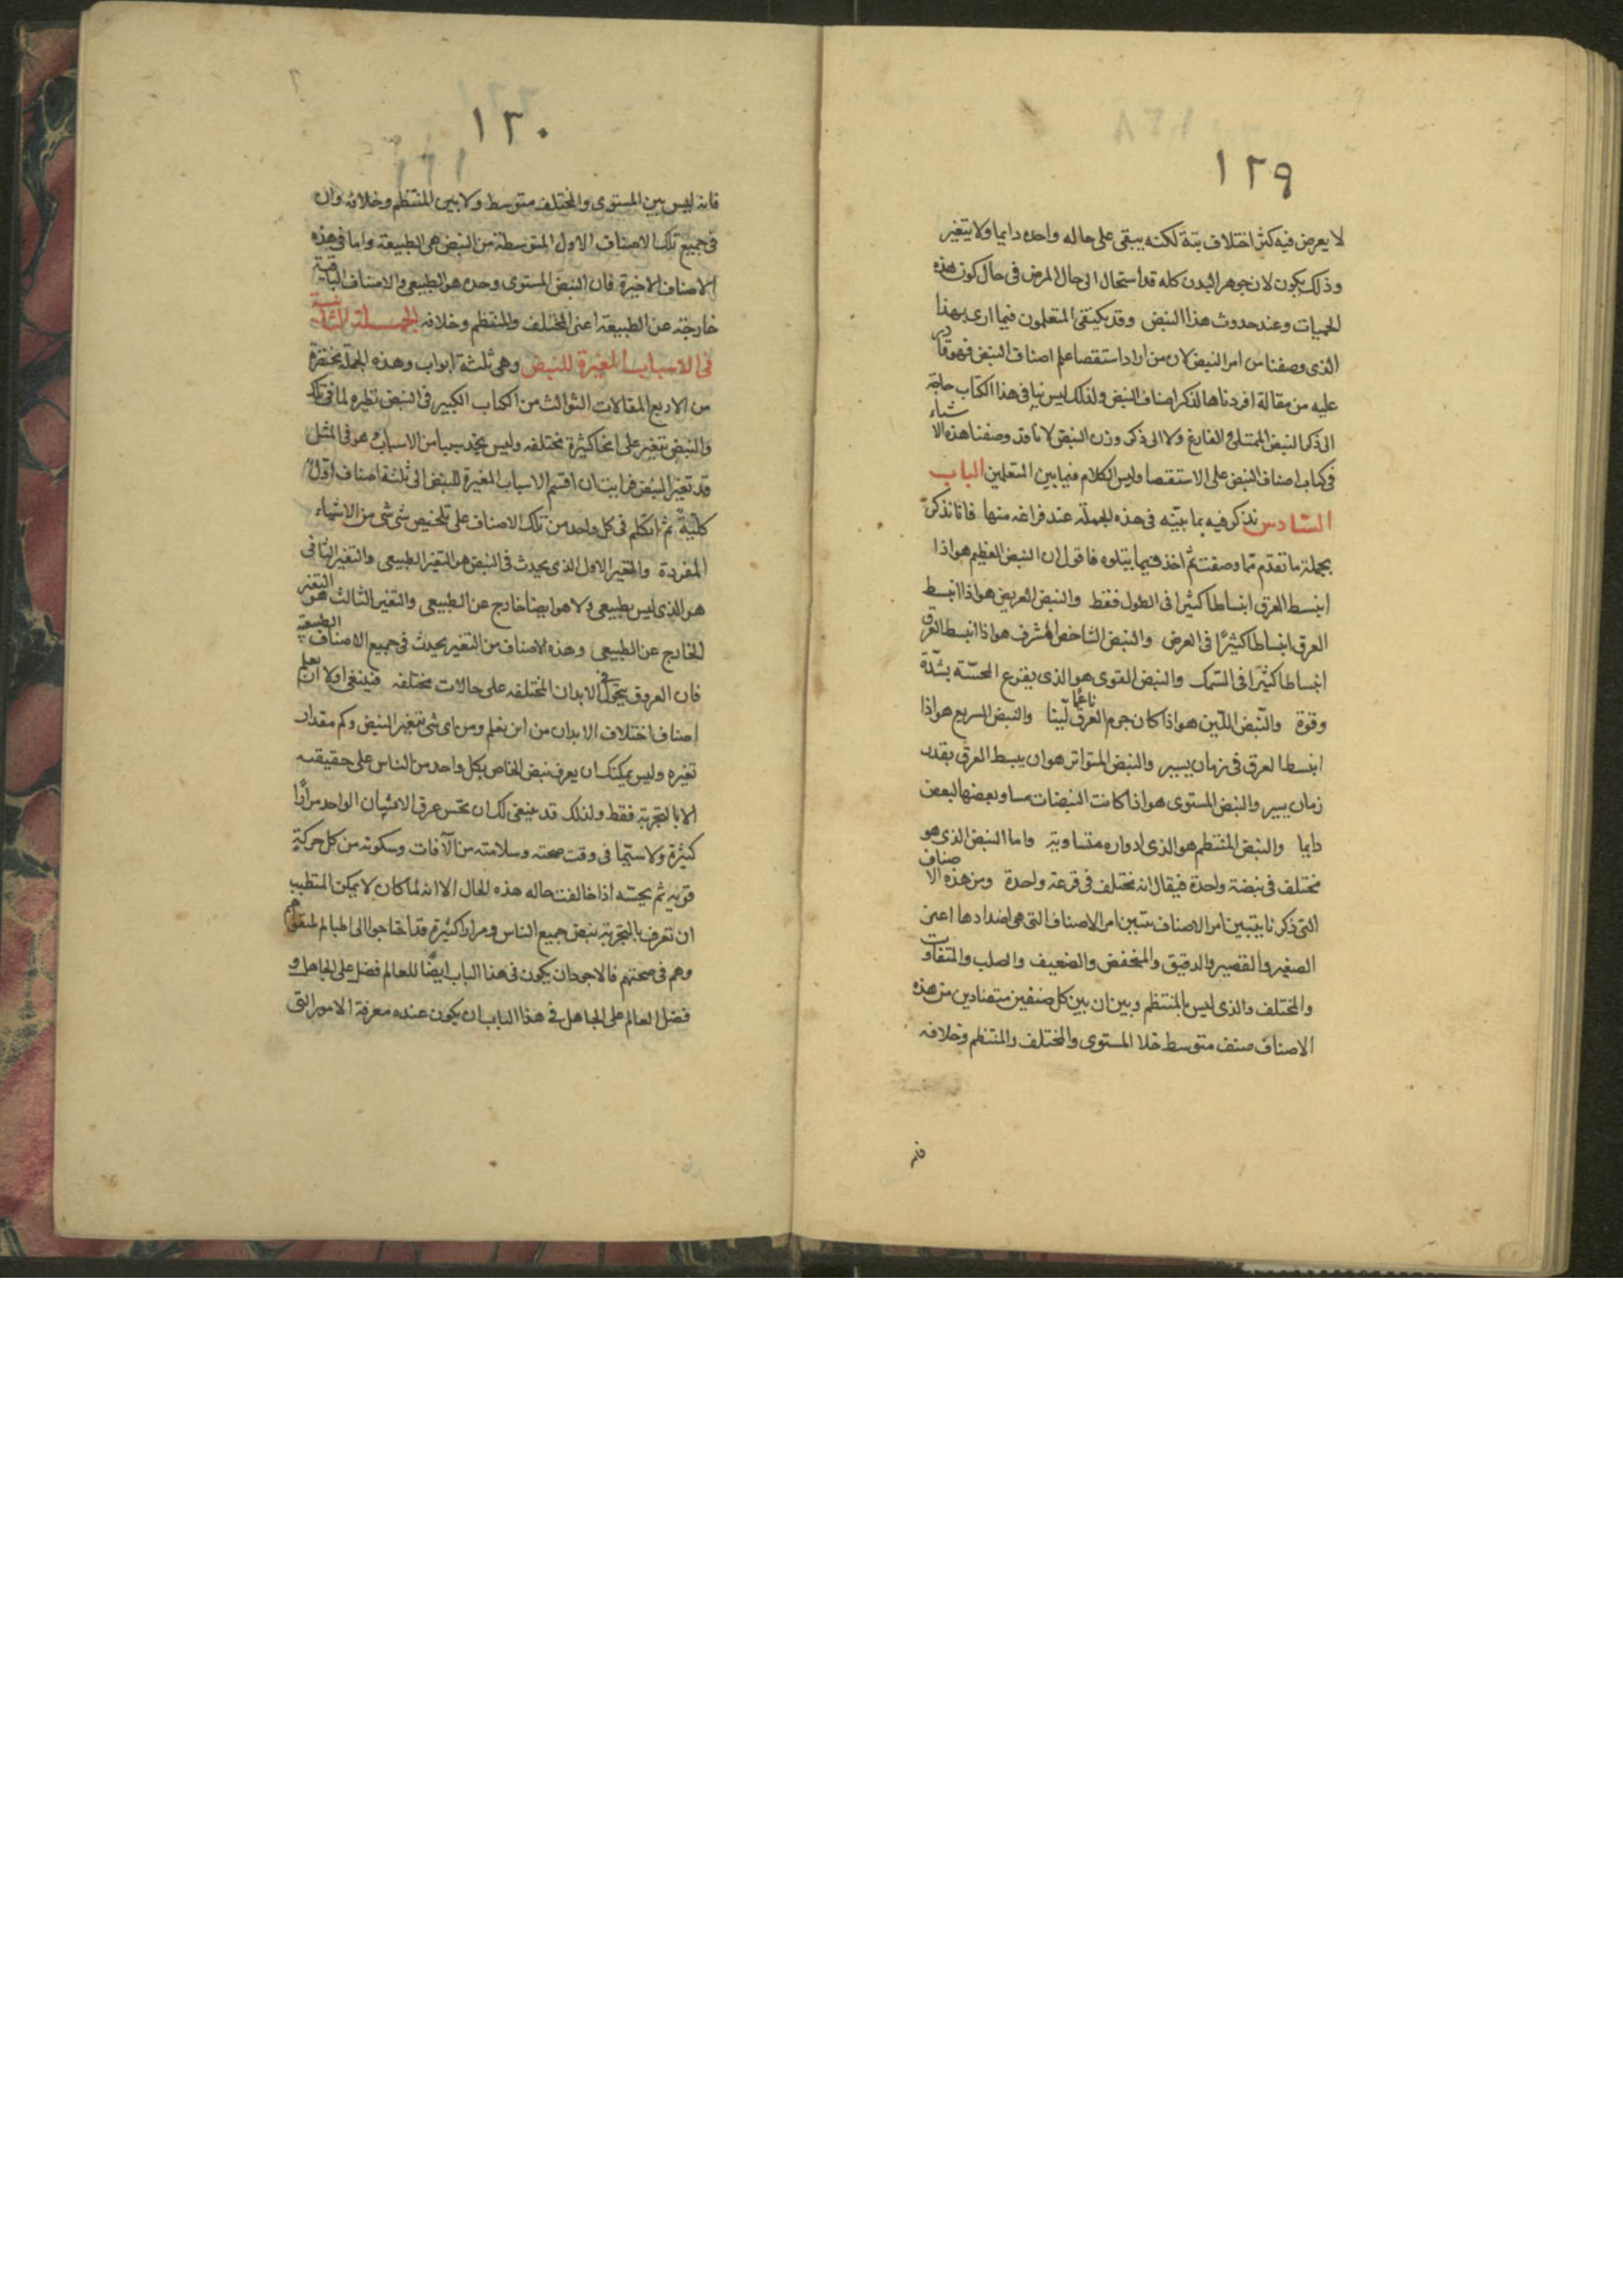 ١٢٩
لا يعرض فيه كثر اختلاف بتة لكنه يبقى على حاله واحده دايما ولا يتغير
وذلك يكون لان جوهر البدن كله قد استحال الى حال المرض فى حال كون هذه
الحميات وعند حدوث هذا النبض وقد يكتفى المتعلمون فيما ارى بهذا
الذى وصفنا من امر النبض لان من اراد استقصا علم اصناف النبض فهو قادر
عليه من مقالة افردناها لذكر اصناف النبض ولذلك ليس بنا فى هذا الكتاب حاجة
الى ذكر النبض الممتلى الفارغ ولا الى ذكر وزن النبض لانا قد وصفنا هذه الاشياء
فى كتاب اصناف النبض على الاستقصا وليس الكلام فيما بين المتعلمين الباب
السادس نذكر فيه بما بيّنه فى هذه الجملة عند فراغه منها فانا نذكر
بجملة ما تقدم مما وصفت ثم اخذ فيما يتلوه فاقول ان النبض العظيم هو اذا
انبسط العرق انبساطا كثيرا فى الطول فقط والنبض العريض هو اذا انبسط
العرق انبساطا كثيرًا فى العرض والنبض الشاخص المشرف هو اذا انبسط العرق
انبساطا كثيرًا فى السمك والنبض القوى هو الذى يقرع المجسّة بشدّة
وقوة والنّبض الليّن هو اذا كان جرم العرق ناعمًا ليّنا والنبض السريع هو اذا
انبسط العرق فى زمان يسير والنبض المتواتر هو ان يبسط العرق بقدر
زمان يسير والنبض المستوى هو اذا كانت النبضات مساو بعضها لبعض
دايما والنبض المنتظم هو الذى ادواره متساوية واما النبض الذى هو
مختلف فى نبضة واحدة فيقال انه مختلف فى قرعة واحدة ومن هذه الاصناف
التى ذكرنا يتبين امر الاصناف يتبين امر الاصناف التى هى اضدادها اعنى
الصغير والقصير والدقيق والمنخفض والضعيف والصلب والمتفاوت
والمختلف والذى ليس بالمنتظم وبين ان بين كل صنفين متضادين من هذه
الاصناف صنف متوسط خلا المستوى والمختلف والمنتظم وخلافه
فانه
١٣٠
فانه ليس بين المستوى والمختلف متوسط ولا بين المنتظم وخلافه وان
فى جميع تلك الاصناف الاول المتوسطة من النبض هى الطبيعة واما فى هذه
الاصناف الاخيرة فان النبض المستوى وحده هو الطبيعى والاصناف الباقية
خارجة عن الطبيعة اعنى المختلف والمنتظم وخلافه الجملة الثانية
فى الاسباب المغيرة للنبض وهى ثلثة ابواب وهذه الجملة مختصرة
من الاربع المقالات الثوالث من الكتاب الكبير فى النبض نظيره لما فى تلك
والنبض يتغير على انحا كثيرة مختلفه وليس يخد سببا من الاسباب هو فى المثل
قد تغيّر النبض فرايت ان اقسم الاسباب المغيرة للنبض الى ثلثة اصناف اوّل
كليّة ثم اتكلم فى كل واحد من تلك الاصناف على تلخيص شى شى من الاشياء
المفردة والتغير الاول الذى يحدث فى النبض هو التغير الطبيعى والتغير الثانى
هو الذى ليس بطبيعى ولا هو ايضا خارج عن الطبيعى والتغير الثالث هو التغير
الخارج عن الطبيعى وهذه الاصناف من التغير يحدث فى جميع الاصناف الطبيعة
فان العروق يتحول فى الابدان المختلفه على حالات مختلفه فينبغى اولا ان يعلم
اصناف اختلاف الابدان من اين يعلم ومن اى شى يتغير النبض وكم مقدار
تغيره وليس يمكنك ان يعرف نبض الخاص بكل واحد من الناس على حقيقته
الا بالتجربة فقط ولذلك قد ينبغى لك ان تجس عرق الانسان الواحد مرارًا
كثيرة ولا سيّما فى وقت صحته وسلامته من الآفات وسكونه من كل حركة
قوية ثم يجسّه اذا خالفت حاله هذه الحال الا انه لما كان لا يمكن المتطبب
ان تعرف بالتجربة نبض جميع الناس ومرارا كثيرة قد احتاجوا الى
وهم فى صحتهم فالاجود ان يكون فى هذا الباب ايضًا للعالم فضل على الجاهل و
فضل العالم على الجاهل فى هذا الباب ان يكون عنده معرفة الامور التى